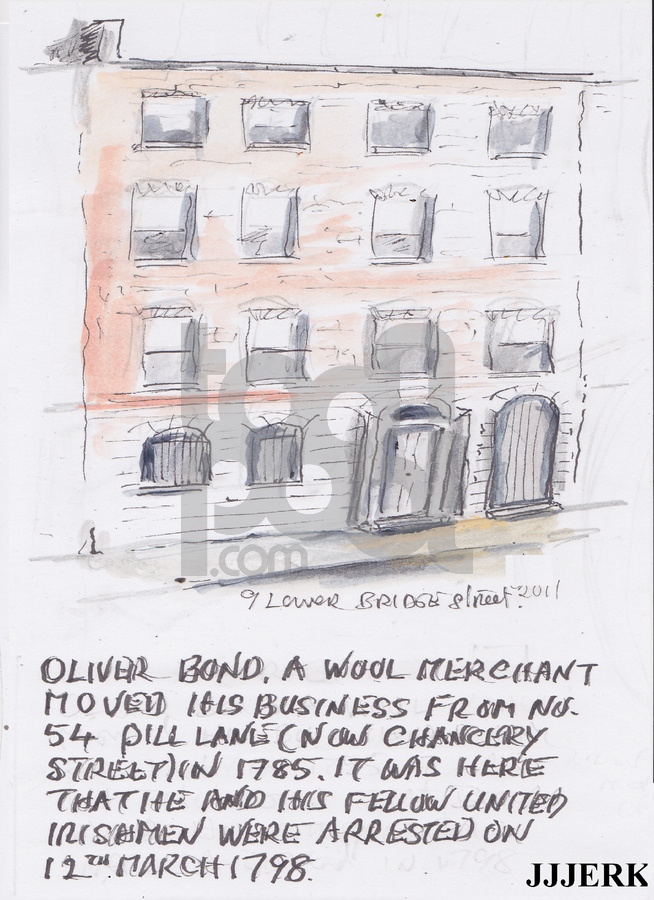 9 LOWER BRIDGE Street. 2011
OLIVER BOND, A WOOL MERCHANT
MOVED HIS BUSINESS FROM NO.
54 PILL LANE (NOW CHANCERY
STREET) IN 1785. IT WAS HERE
THAT HE AND HIS FELLOW UNITED
IRISHMEN WERE ARRESTED ON
12TH MARCH 1798.
tgda
.com
JJJERK